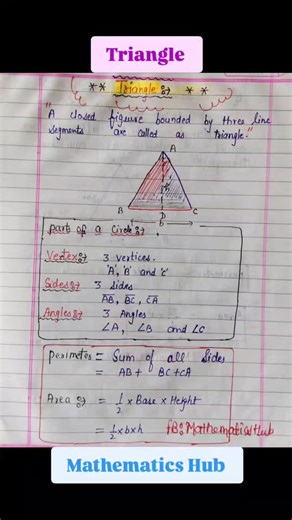 Triangle
** Triangle :→ **
"A closed figure bounded by three line
segments are called as triangle."
A
h
B D C
b
parts of a Circle :→
Vertex :→ 3 vertices.
'A', 'B' and 'C'
Sides :→ 3 Sides
AB, BC, CA
Angles :→ 3 Angles
∠A, ∠B and ∠C
perimeter = Sum of all Sides
= AB + BC + CA
Area :→ = 1/2 × Base × Height
= 1/2 × b × h FB: Mathematics Hub
Mathematics Hub